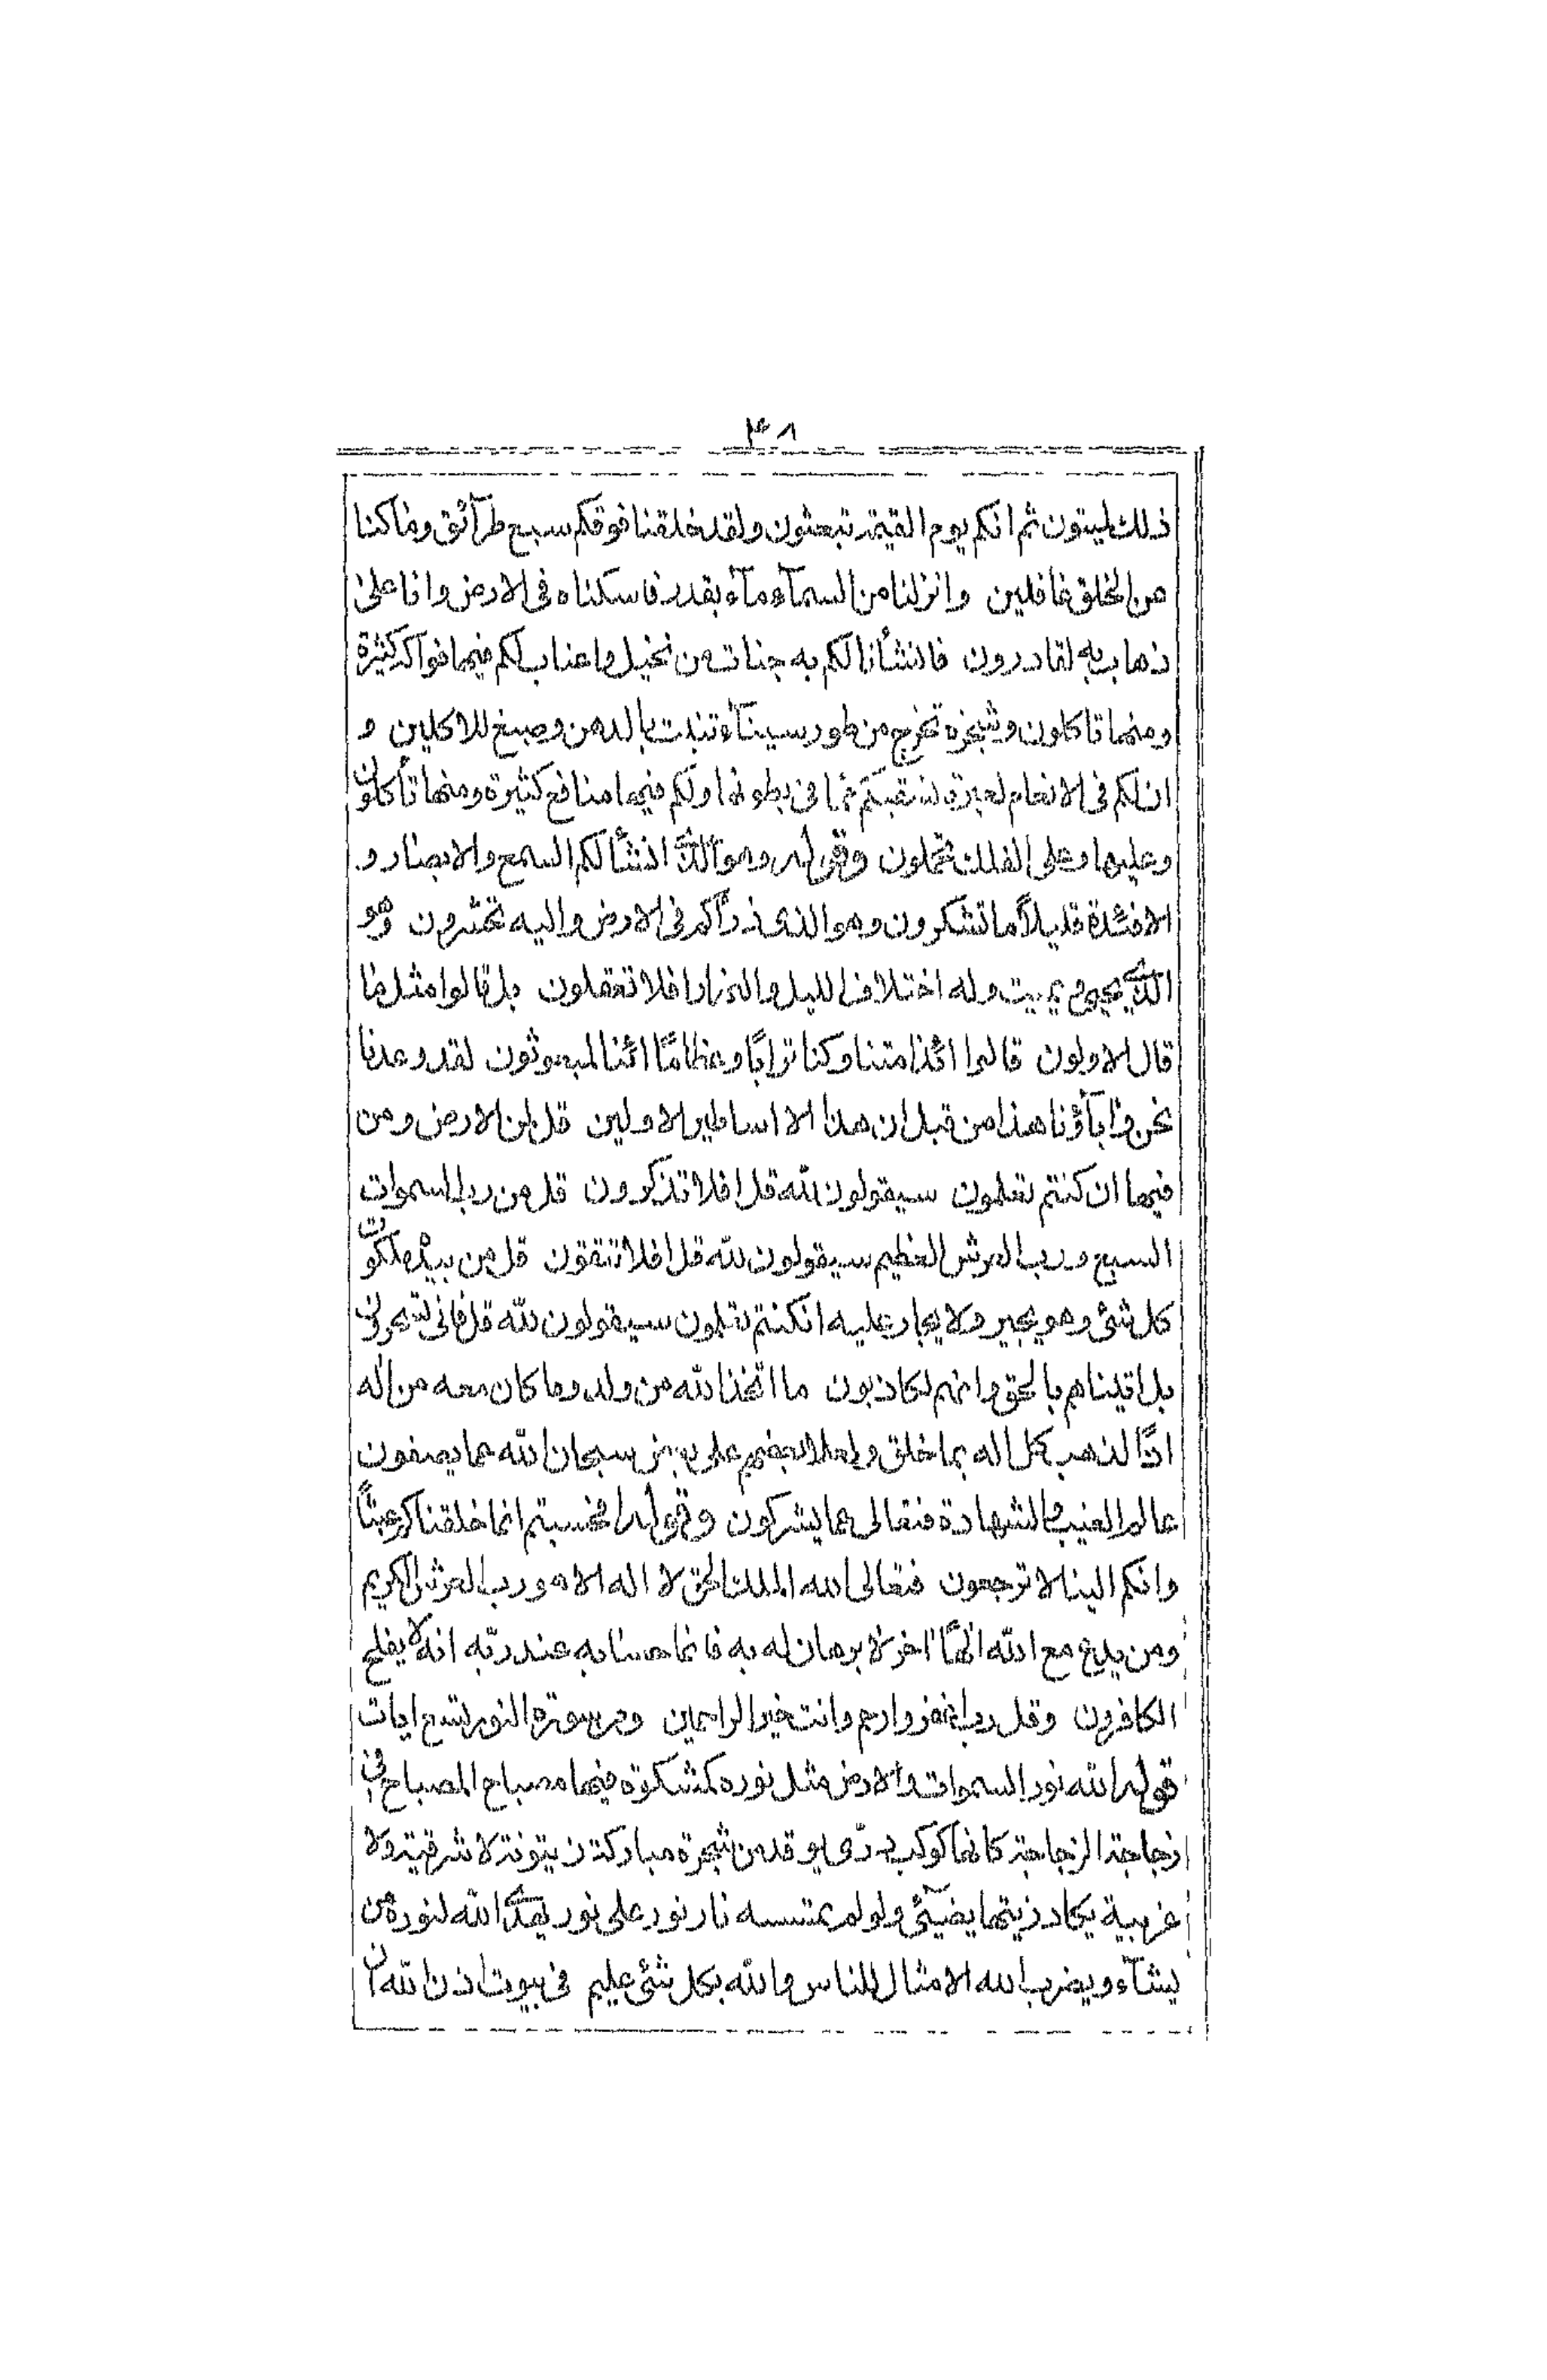 ٣٨
ذلك لميتون ثم انكم يوم القيمة تبعثون ولقد خلقنا فوقكم سبع طرآئق وما كنا
عن الخلق غافلين وانزلنا من السمآء مآء بقدر فاسكناه فى الارض وانا على
ذهاب به لقادرون فانشأنا لكم به جنات من نخيل واعناب لكم فيها فواكه كثيرة
ومنها تاكلون وشجرة تخرج من طور سينآء تنبت بالدهن وصبغ للاكلين و
ان لكم فى الانعام لعبرة نسقيكم مما فى بطونها ولكم فيها منافع كثيرة ومنها تأكلون
وعليها وعلى الفلك تحملون وقوله وهو الذى انشألكم السمع والابصار و
الافئدة قليلاً ما تشكرون وهو الذى ذرأكم فى الارض واليه تحشرون وهو
الذى يحيى ويميت وله اختلاف الليل والنهار افلا تعقلون بل قالوا مثل ما
قال الاولون قالوا ائذا متنا وكنا تراباً وعظاماً ائنا لمبعوثون لقد وعدنا
نحن وآبآؤنا هذا من قبل ان هذا الا اساطير الاولين قل لمن الارض ومن
فيها ان كنتم تعلمون سيقولون لله قل افلا تذكرون قل من رب السموات
السبع ورب العرش العظيم سيقولون لله قل افلا تتقون قل من بيده ملكوت
كل شئ وهو يجير ولا يجار عليه ان كنتم تعلمون سيقولون لله قل فانى تسحرون
بل اتيناهم بالحق وانهم لكاذبون ما اتخذ الله من ولد وما كان معه من اله
اذًا لذهب كل اله بما خلق ولعلا بعضهم على بعض سبحان الله عما يصفون
عالم الغيب والشهادة فتعالى عما يشركون وقوله افحسبتم انما خلقناكم عبثاً
وانكم الينا لا ترجعون فتعالى الله الملك الحق لا اله الا هو رب العرش الكريم
ومن يدع مع الله الهًا اخر لا برهان له به فانما حسابه عند ربّه انه لا يفلح
الكافرون وقل رب اغفر وارحم وانت خير الراحمين ومن سورة النور تسع ايات
قوله الله نور السموات والارض مثل نوره كمشكوة فيها مصباح المصباح فى
زجاجة الزجاجة كانها كوكب درّى يوقد من شجرة مباركة زيتونة لا شرقية ولا
غربية يكاد زيتها يضيئ ولو لم تمسسه نار نور على نور يهدى الله لنوره من
يشآء ويضرب الله الامثال للناس والله بكل شئ عليم فى بيوت اذن الله ان